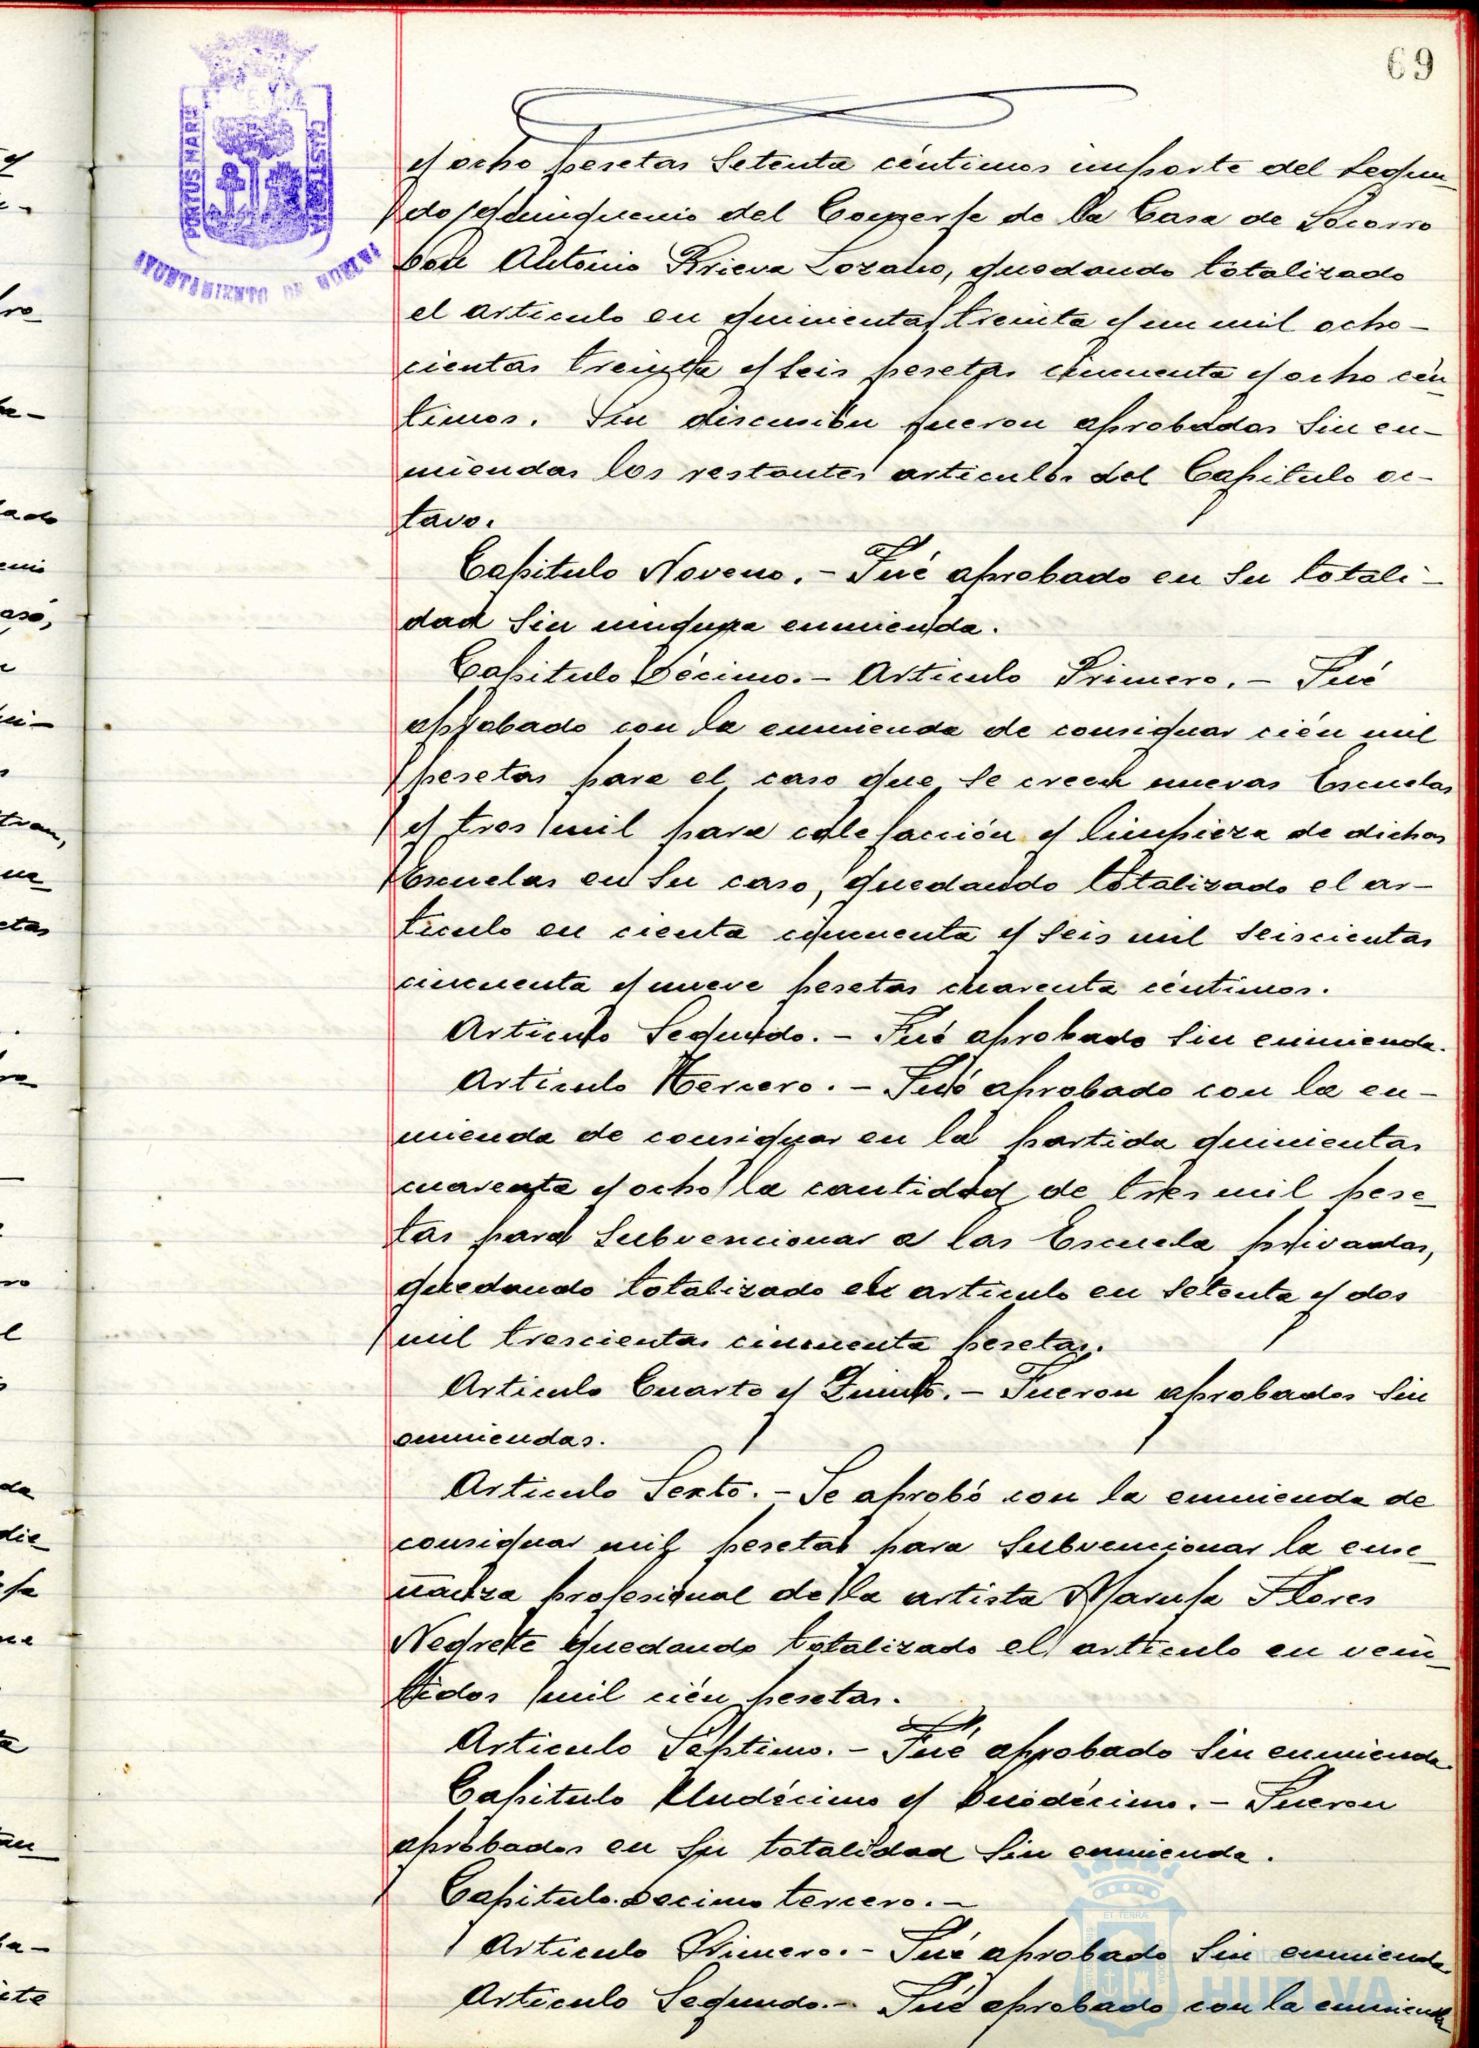 69
PORTUS MARIS
CUSTODIA
AYUNTAMIENTO DE HUELVA
y ocho pesetas setenta céntimos importe del segun-
do quinquenio del Conserje de la Casa de Socorro
Don Antonio Rrieva Lozano, quedando totalizado
el articulo en quinientas treinta y un mil ocho-
cientas treinta y seis pesetas cincuenta y ocho cén-
timos. Sin discusión fueron aprobados sin en-
miendas los restantes articulos del Capitulo oc-
tavo.
Capitulo Noveno.- Fué aprobado en su totali-
dad sin ninguna enmienda.
Capitulo Décimo.- Articulo Primero.- Fué
aprobado con la enmienda de consignar cién mil
pesetas para el caso que se creen nuevas Escuelas
y tres mil para calefacción y limpieza de dichas
Escuelas en su caso, quedando totalizado el ar-
ticulo en cienta cincuenta y seis mil seiscientas
cincuenta y nueve pesetas cuarenta céntimos.
Articulo Segundo.- Fué aprobado sin enmienda.
Articulo Tercero.- Fué aprobado con la en-
mienda de consignar en la partida quinientas
cuarenta y ocho la cantidad de tres mil pese-
tas para subvencionar a las Escuela privadas,
quedando totalizado el articulo en setenta y dos
mil trescientas cincuenta pesetas.
Articulo Cuarto y Quinto.- Fueron aprobados sin
enmiendas.
Articulo Sexto.- Se aprobó con la enmienda de
consignar mil pesetas para subvencionar la ense-
ñanza profesional de la artista Maruja Flores
Negrete quedando totalizado el articulo en vein-
tidos mil cién pesetas.
Articulo Séptimo.- Fué aprobado sin enmienda.
Capitulo Undécimo y Duodécimo.- Fueron
aprobados en su totalidad sin enmienda.
Capitulo Decimo tercero.-
Articulo Primero.- Fué aprobado sin enmienda
Articulo Segundo.- Fué aprobado con la enmienda
HUELVA